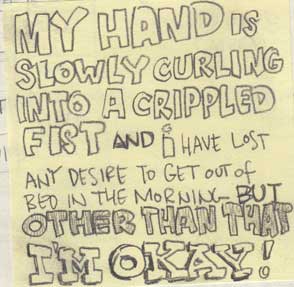 MY HAND IS
SLOWLY CURLING
INTO A CRIPPLED
FIST AND i HAVE LOST
ANY DESIRE TO GET OUT OF
BED IN THE MORNING- BUT
OTHER THAN THAT
I'M OKAY!